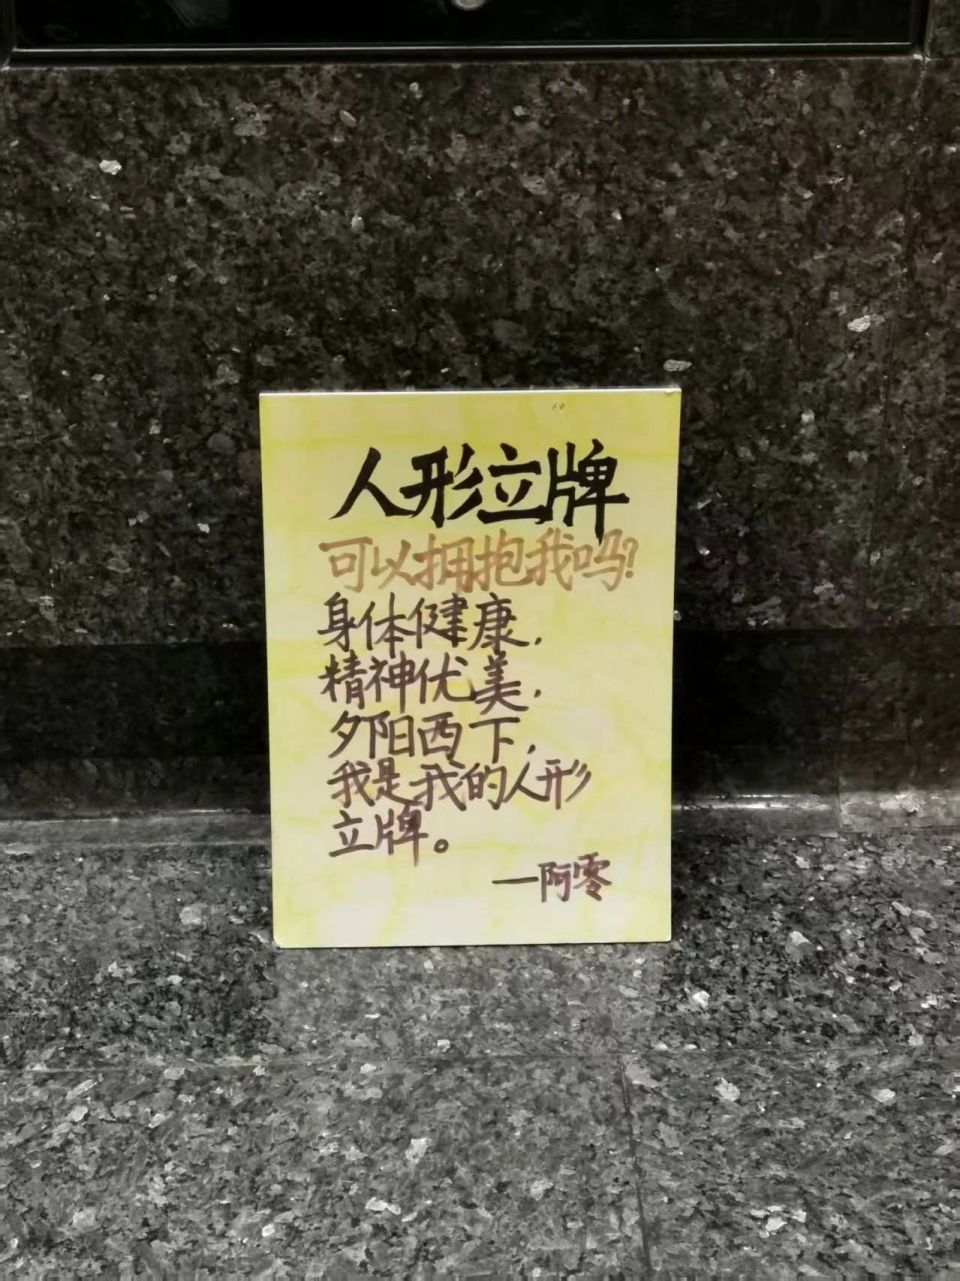 人形立牌
可以拥抱我吗?
身体健康，
精神优美，
夕阳西下，
我是我的人形
立牌。
—阿零